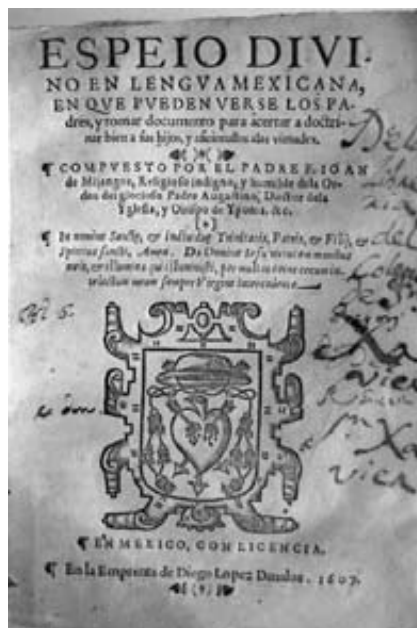 ESPEIO DIVI-
NO EN LENGVA MEXICANA,
EN QVE PVEDEN VERSE LOS PA-
dres, y tomar documento para acertar a doctri-
nar bien a sus hijos, y aficionallos alas virtudes.
¶ COMPVESTO POR EL PADRE F. IOAN
de Mijangos, Religioso indigno, y humilde dela Or-
den del glorioso Padre Augustino, Doctor dela
Yglesia, y Ouispo de Yponia. &c.
¶ In nomine Sanctę, & Indiuiduę Trinitatis, Patris, & Filij, &
Spiritus sancti, Amen. Da Domine Iesu
&
semper Virgine intercedente.
¶ EN MEXICO, CON LICENCIA.
¶ En la Emprenta de Diego Lopez Daualos. 1607.
Del
del
Coleg
de S.
Xa
vier
Sn. Xa
vier